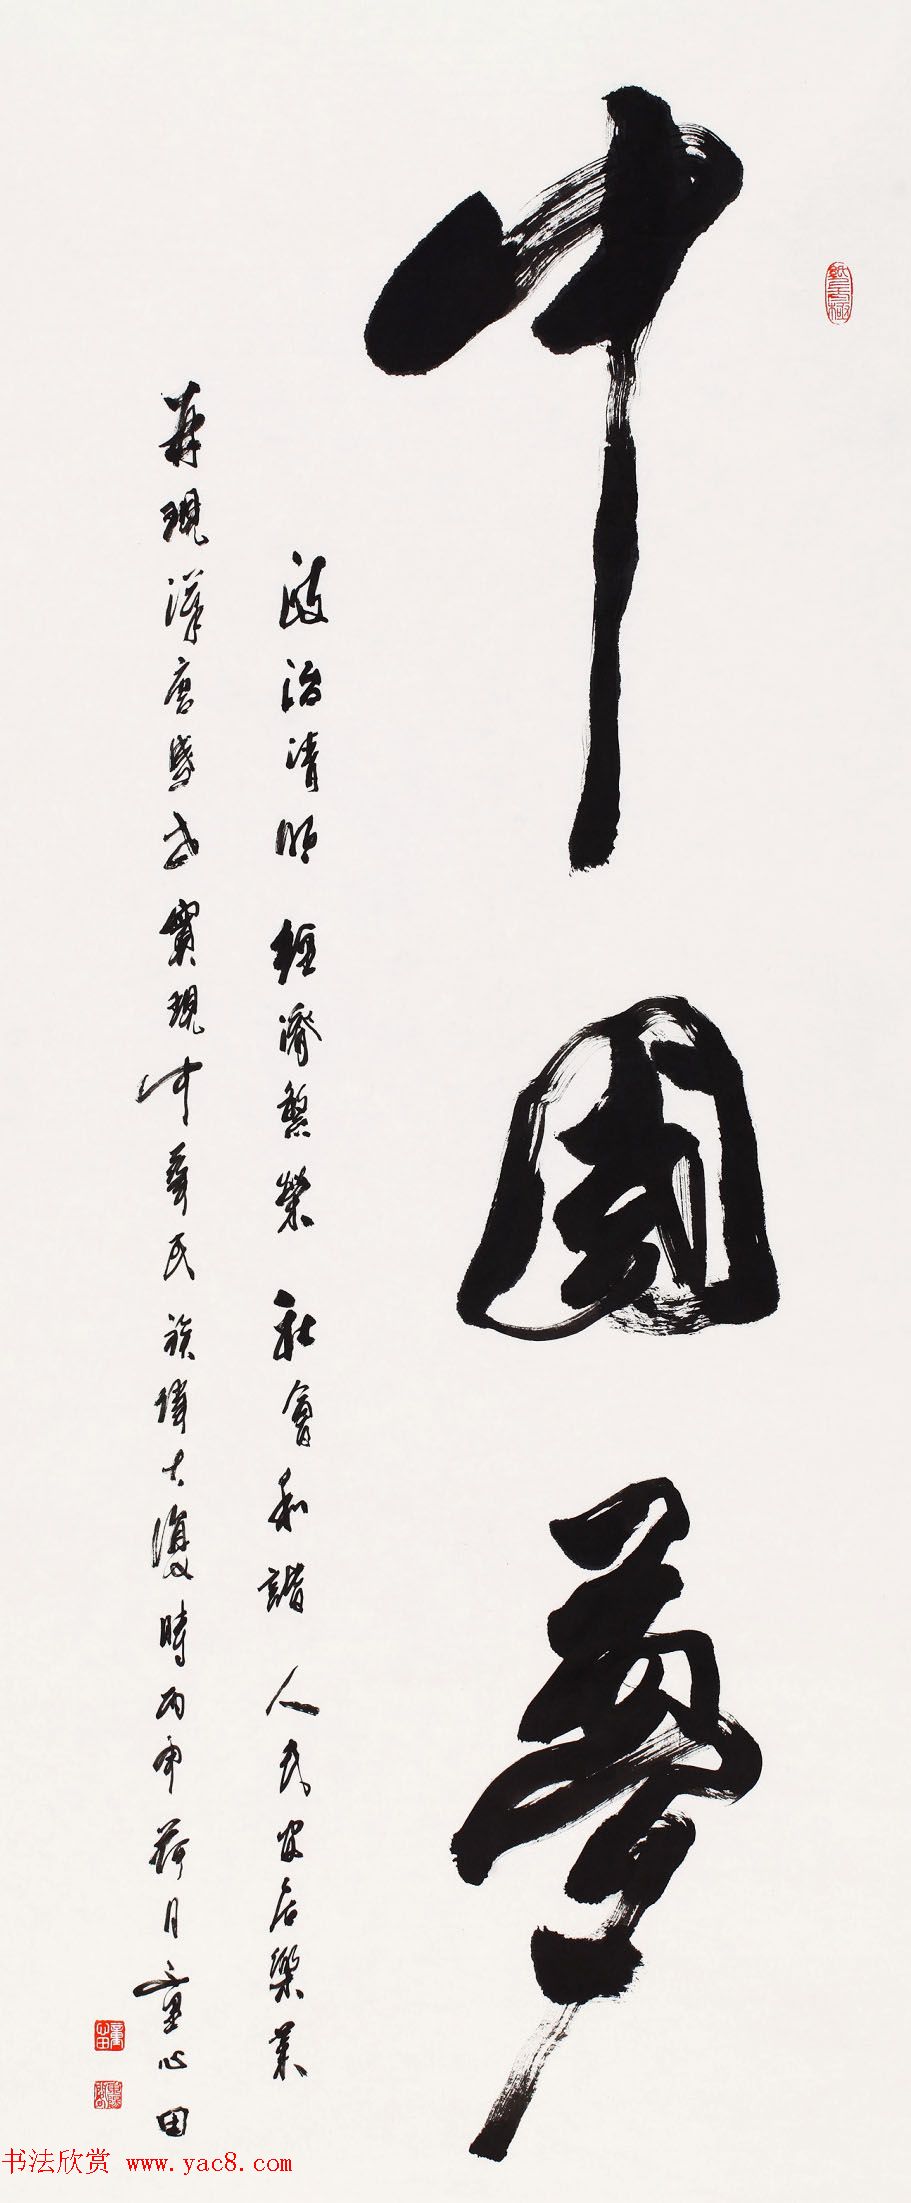 中國夢
政治清明 經濟繁榮 社會和諧 人民安居樂業
再現漢唐盛世實現中華民族偉大復時丙申荷月童心田
书法欣赏 www.yac8.com